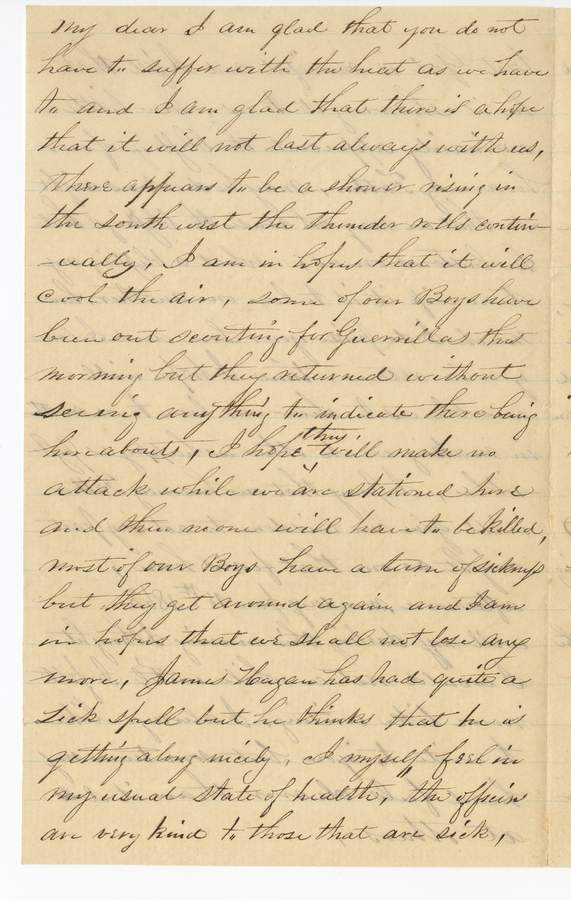 My dear I am glad that you do not
have to suffer with the heat as we have
to and I am glad that there is a hope
that it will not last always with us,
there appears to be a shower rising in
the south west the thunder rolls contin-
-ually, I am in hopes that it will
cool the air, some of our Boys have
been out scouting for Guerrillas this
morning but they returned without
seeing anything to indicate there being
hereabouts, I hope they will make no
attack while we are stationed here
and then no one will have to be killed,
most of our Boys have a turn of sickness
but they get around again and I am
in hopes that we shall not lose any
more, James Hagan has had quite a
sick spell but he thinks that he is
getting along nicely, I myself feel in
my usual state of health, the officers
are very kind to those that are sick,